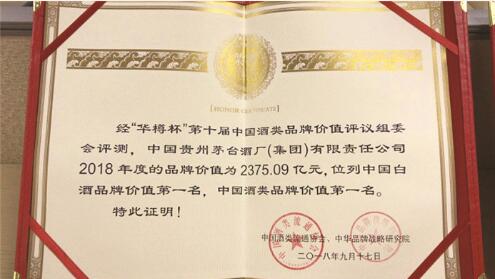 [HONOR CERTIFICATE]
经“华樽杯”第十届中国酒类品牌价值评议组委
会评测，中国贵州茅台酒厂(集团)有限责任公司
2018年度的品牌价值为2375.09亿元，位列中国白
酒品牌价值第一名，中国酒类品牌价值第一名。
特此证明！
中国酒类流通协会、中华品牌战略研究院
二〇一八年九月十七日
中国酒类流通协会